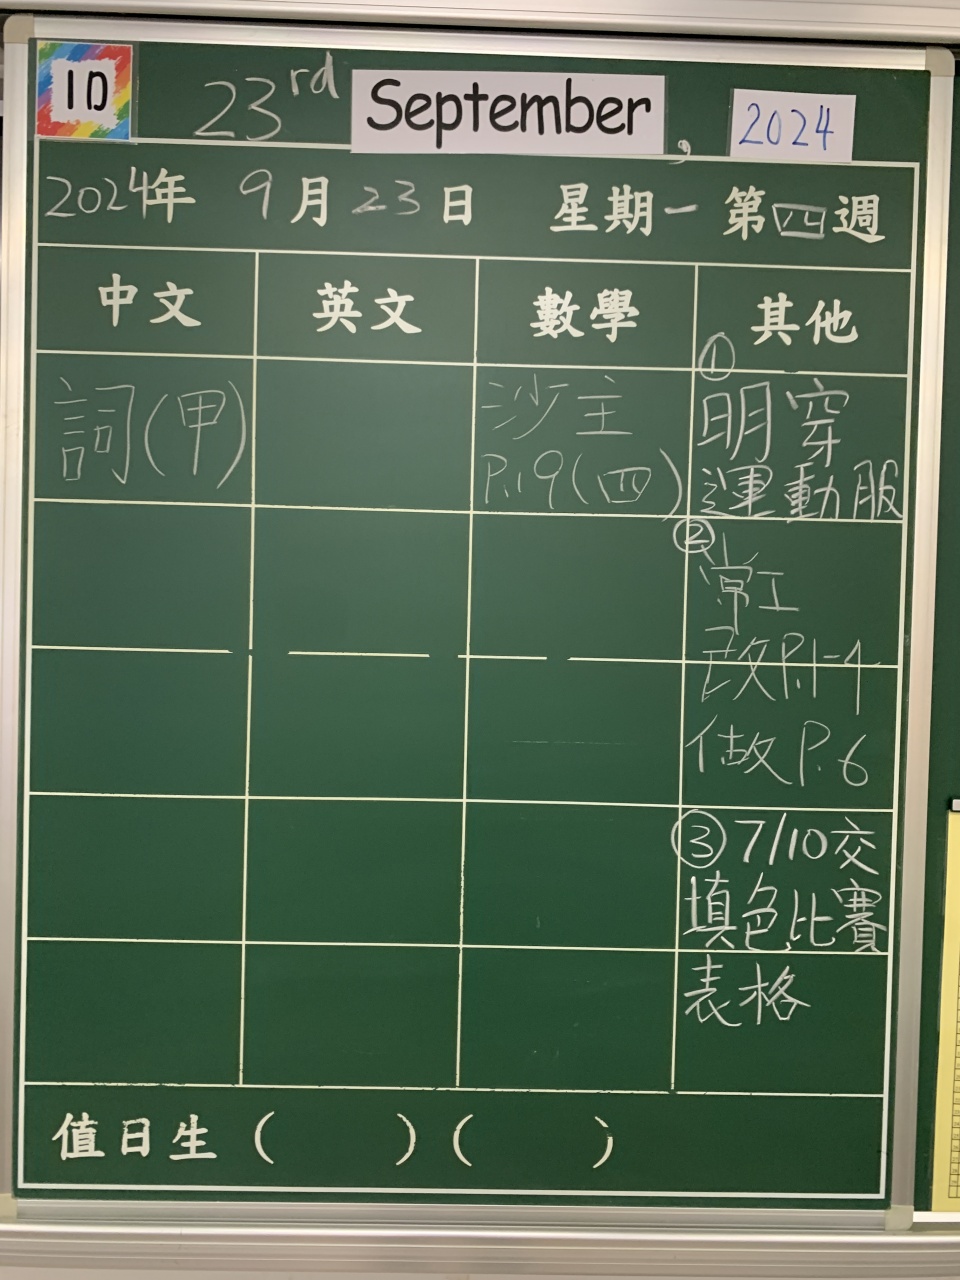 1D
23rd September, 2024
2024年 9月23日 星期一 第四週
中文 英文 數學 其他
詞(甲)
沙主
P.19(四)
① 明穿
運動服
② 常工
改P.1-4
做P.6
③ 7/10交
填色比賽
表格
值日生 ( ) ( )